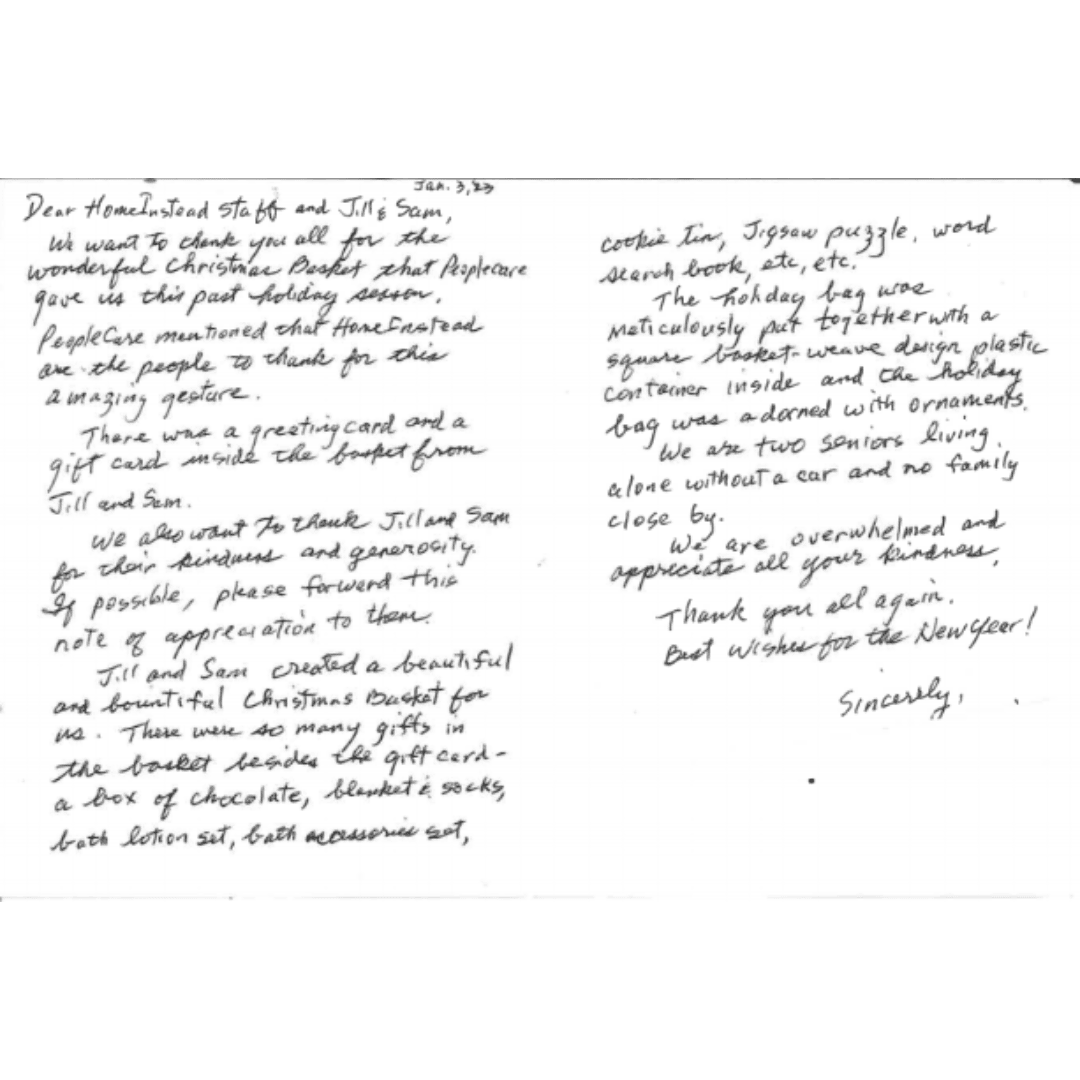 Jan. 3, 23
Dear HomeInstead Staff and Jill & Sam,
We want to thank you all for the
wonderful Christmas Basket that Peoplecare
gave us this past holiday season.
PeopleCare mentioned that HomeInstead
are the people to thank for this
amazing gesture.
There was a greeting card and a
gift card inside the basket from
Jill and Sam.
We also want to thank Jill and Sam
for their kindness and generosity.
If possible, please forward this
note of appreciation to them.
Jill and Sam created a beautiful
and bountiful Christmas Basket for
us. There were so many gifts in
the basket besides the gift card -
a box of chocolate, blanket & socks,
bath lotion set, bath accessories set,
cookie tin, Jigsaw puzzle, word
search book, etc, etc.
The holiday bag was
meticulously put together with a
square basket-weave design plastic
container inside and the holiday
bag was adorned with ornaments.
We are two seniors living
alone without a car and no family
close by.
We are overwhelmed and
appreciate all your kindness.
Thank you all again.
Best Wishes for the New Year!
Sincerely,